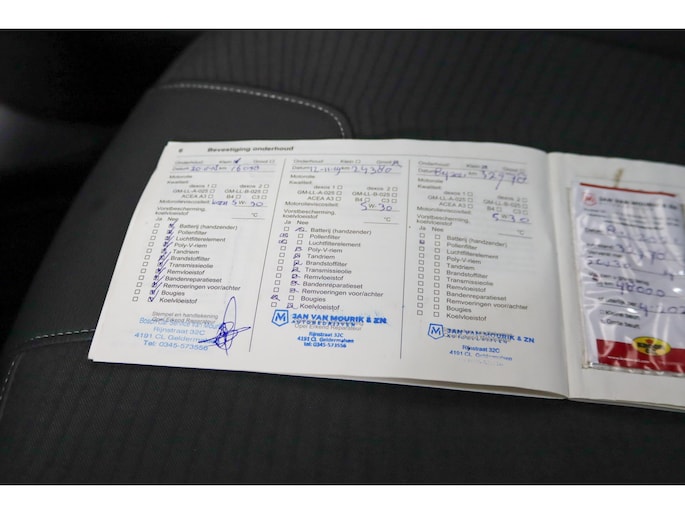 6 Bevestiging onderhoud
Onderhoud Klein Groot
Datum km
Motorolie
Kwaliteit:
dexos 1 dexos 2
GM-LL-A-025 GM-LL-B-025
ACEA A3 B4 C3
Motorolieviscositeit: 5 W 30
Vorstbescherming,
koelvloeistof °C
Ja Nee
Batterij (handzender)
Pollenfilter
Luchtfilterelement
Poly-V-riem
Tandriem
Brandstoffilter
Transmissieolie
Remvloeistof
Bandenreparatieset
Remvoeringen voor/achter
Bougies
Koelvloeistof
Stempel en handtekening
Opel Erkend Reparateur
Rijnstraat 32C
4191 CL Geldermalsen
Tel: 0345-573556
Onderhoud: Klein Groot
Datum 12-11-19 km 24380
Motorolie
Kwaliteit:
dexos 1 dexos 2
GM-LL-A-025 GM-LL-B-025
ACEA A3 B4 C3
Motorolieviscositeit: 5 W 30
Vorstbescherming,
koelvloeistof °C
Ja Nee
Batterij (handzender)
Pollenfilter
Luchtfilterelement
Poly-V-riem
Tandriem
Brandstoffilter
Transmissieolie
Remvloeistof
Bandenreparatieset
Remvoeringen voor/achter
Bougies
Koelvloeistof
JAN VAN MOURIK & ZN.
AUTOBEDRIJVEN
Opel Erkend Reparateur
Rijnstraat 32C
4191 CL Geldermalsen
Tel: 0345-573556
Onderhoud: Klein Groot
Datum km
Motorolie
Kwaliteit:
dexos 1 dexos 2
GM-LL-A-025 GM-LL-B-025
ACEA A3 B4 C3
Motorolieviscositeit: 5 W 30
Vorstbescherming,
koelvloeistof °C
Ja Nee
Batterij (handzender)
Pollenfilter
Luchtfilterelement
Poly-V-riem
Tandriem
Brandstoffilter
Transmissieolie
Remvloeistof
Bandenreparatieset
Remvoeringen voor/achter
Bougies
Koelvloeistof
JAN VAN MOURIK & ZN.
AUTOBEDRIJVEN
Rijnstraat 32C
4191 CL Geldermalsen
Tel: 0345-573556
JAN VAN MOURIK
48000